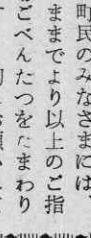 町民のみなさまには、
ままでより以上のご指
ごべんたつをたまわり